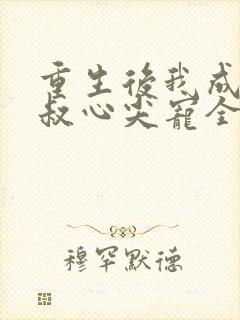 重生後我成
叔心尖寵全
穆罕默德